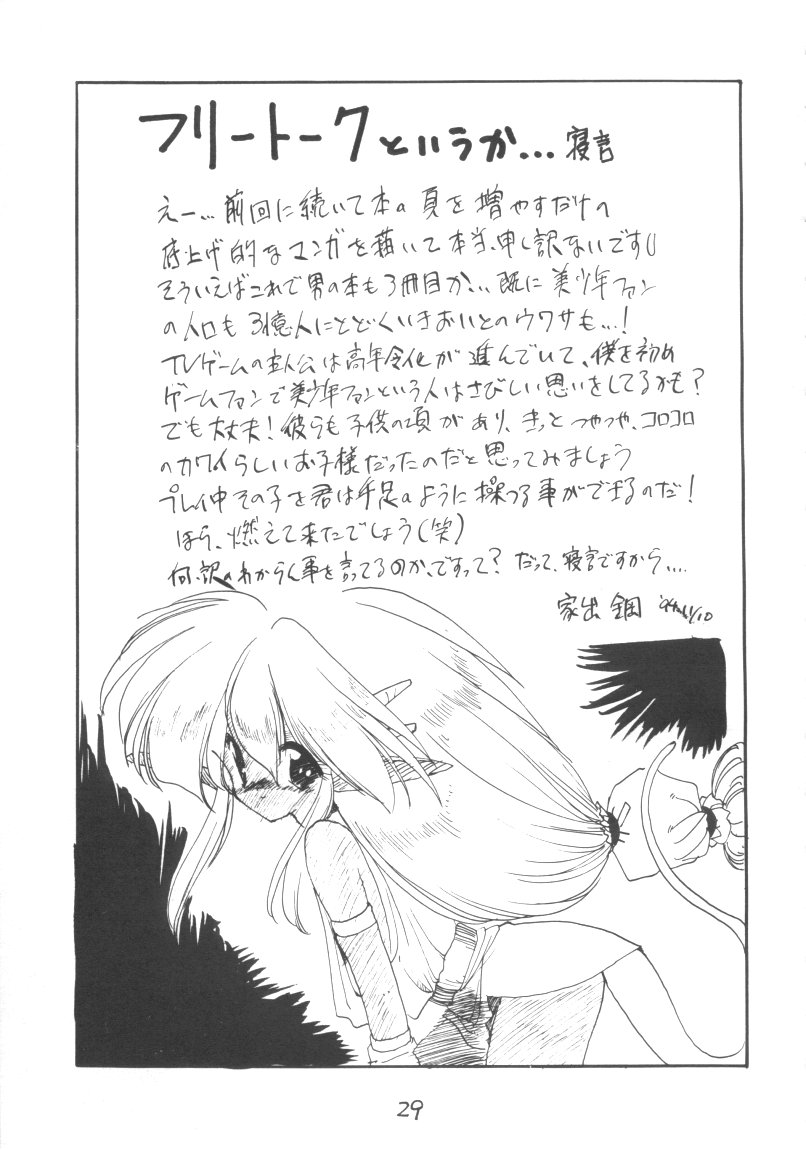 フリートークというか… 寝言
えー… 前回に続いて本の頁を増やすだけの
底上げ的なマンガを描いて本当、申し訳ないです
そういえばこれで男の本も3冊目か… 既に美少年ファン
の人口も3億人にとどくいきおいとのウワサも…!
TVゲームの主人公は高年令化が進んでいて、僕を初め
ゲームファンで美少年ファンという人はさびしい思いをしてるかも?
でも大丈夫! 彼らも子供の頃があり、きっとつやつや、コロコロ
のカワイらしいお子様だったのだと思ってみましょう
プレイ中その子を君は手足のように操つる事ができるのだ!
ほら、燃えて来たでしょう(笑)
何、訳のわからん事を言ってるのか、ですって? だって、寝言ですから....
家出 鋼 '94.11/10
29